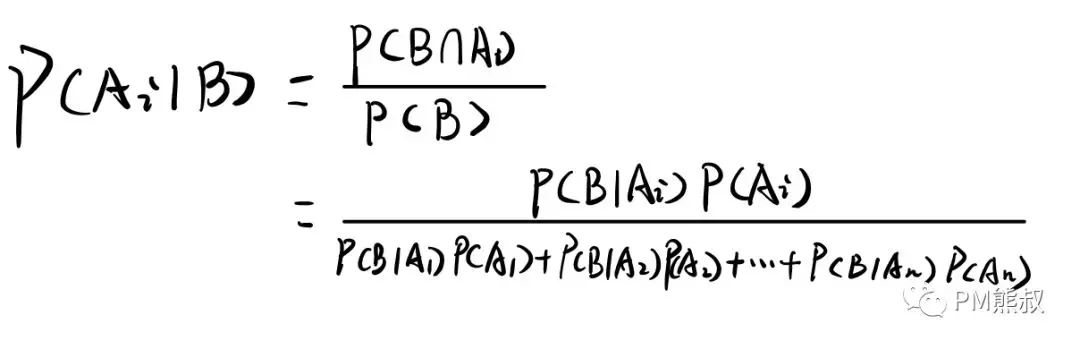 P(Aᵢ|B) = P(B∩Aᵢ) / P(B)
= P(B|Aᵢ) P(Aᵢ) / P(B|A₁) P(A₁) + P(B|A₂) P(A₂) + ⋯ + P(B|Aₙ) P(Aₙ)
PM熊叔